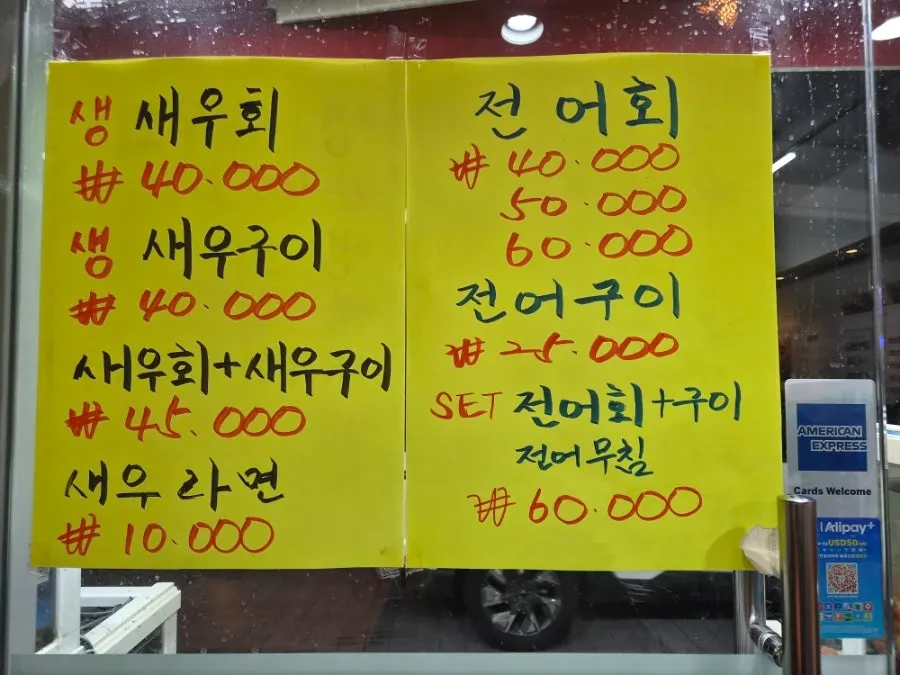 생 새우회
₩ 40.000
생 새우구이
₩ 40.000
새우회+새우구이
₩ 45.000
새우 라면
₩ 10.000
전어회
₩ 40.000
50.000
60.000
전어구이
₩ 25.000
SET 전어회+구이
전어무침
₩ 60.000
AMERICAN
EXPRESS
Cards Welcome
Alipay+
USD50